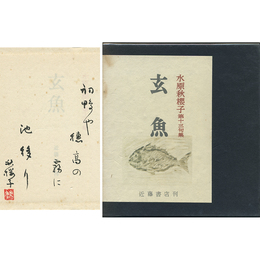 初鴨や
穂高の
霧に
池移り
秋櫻子
玄魚
水原秋櫻子第十三句集
玄魚
近藤書店刊